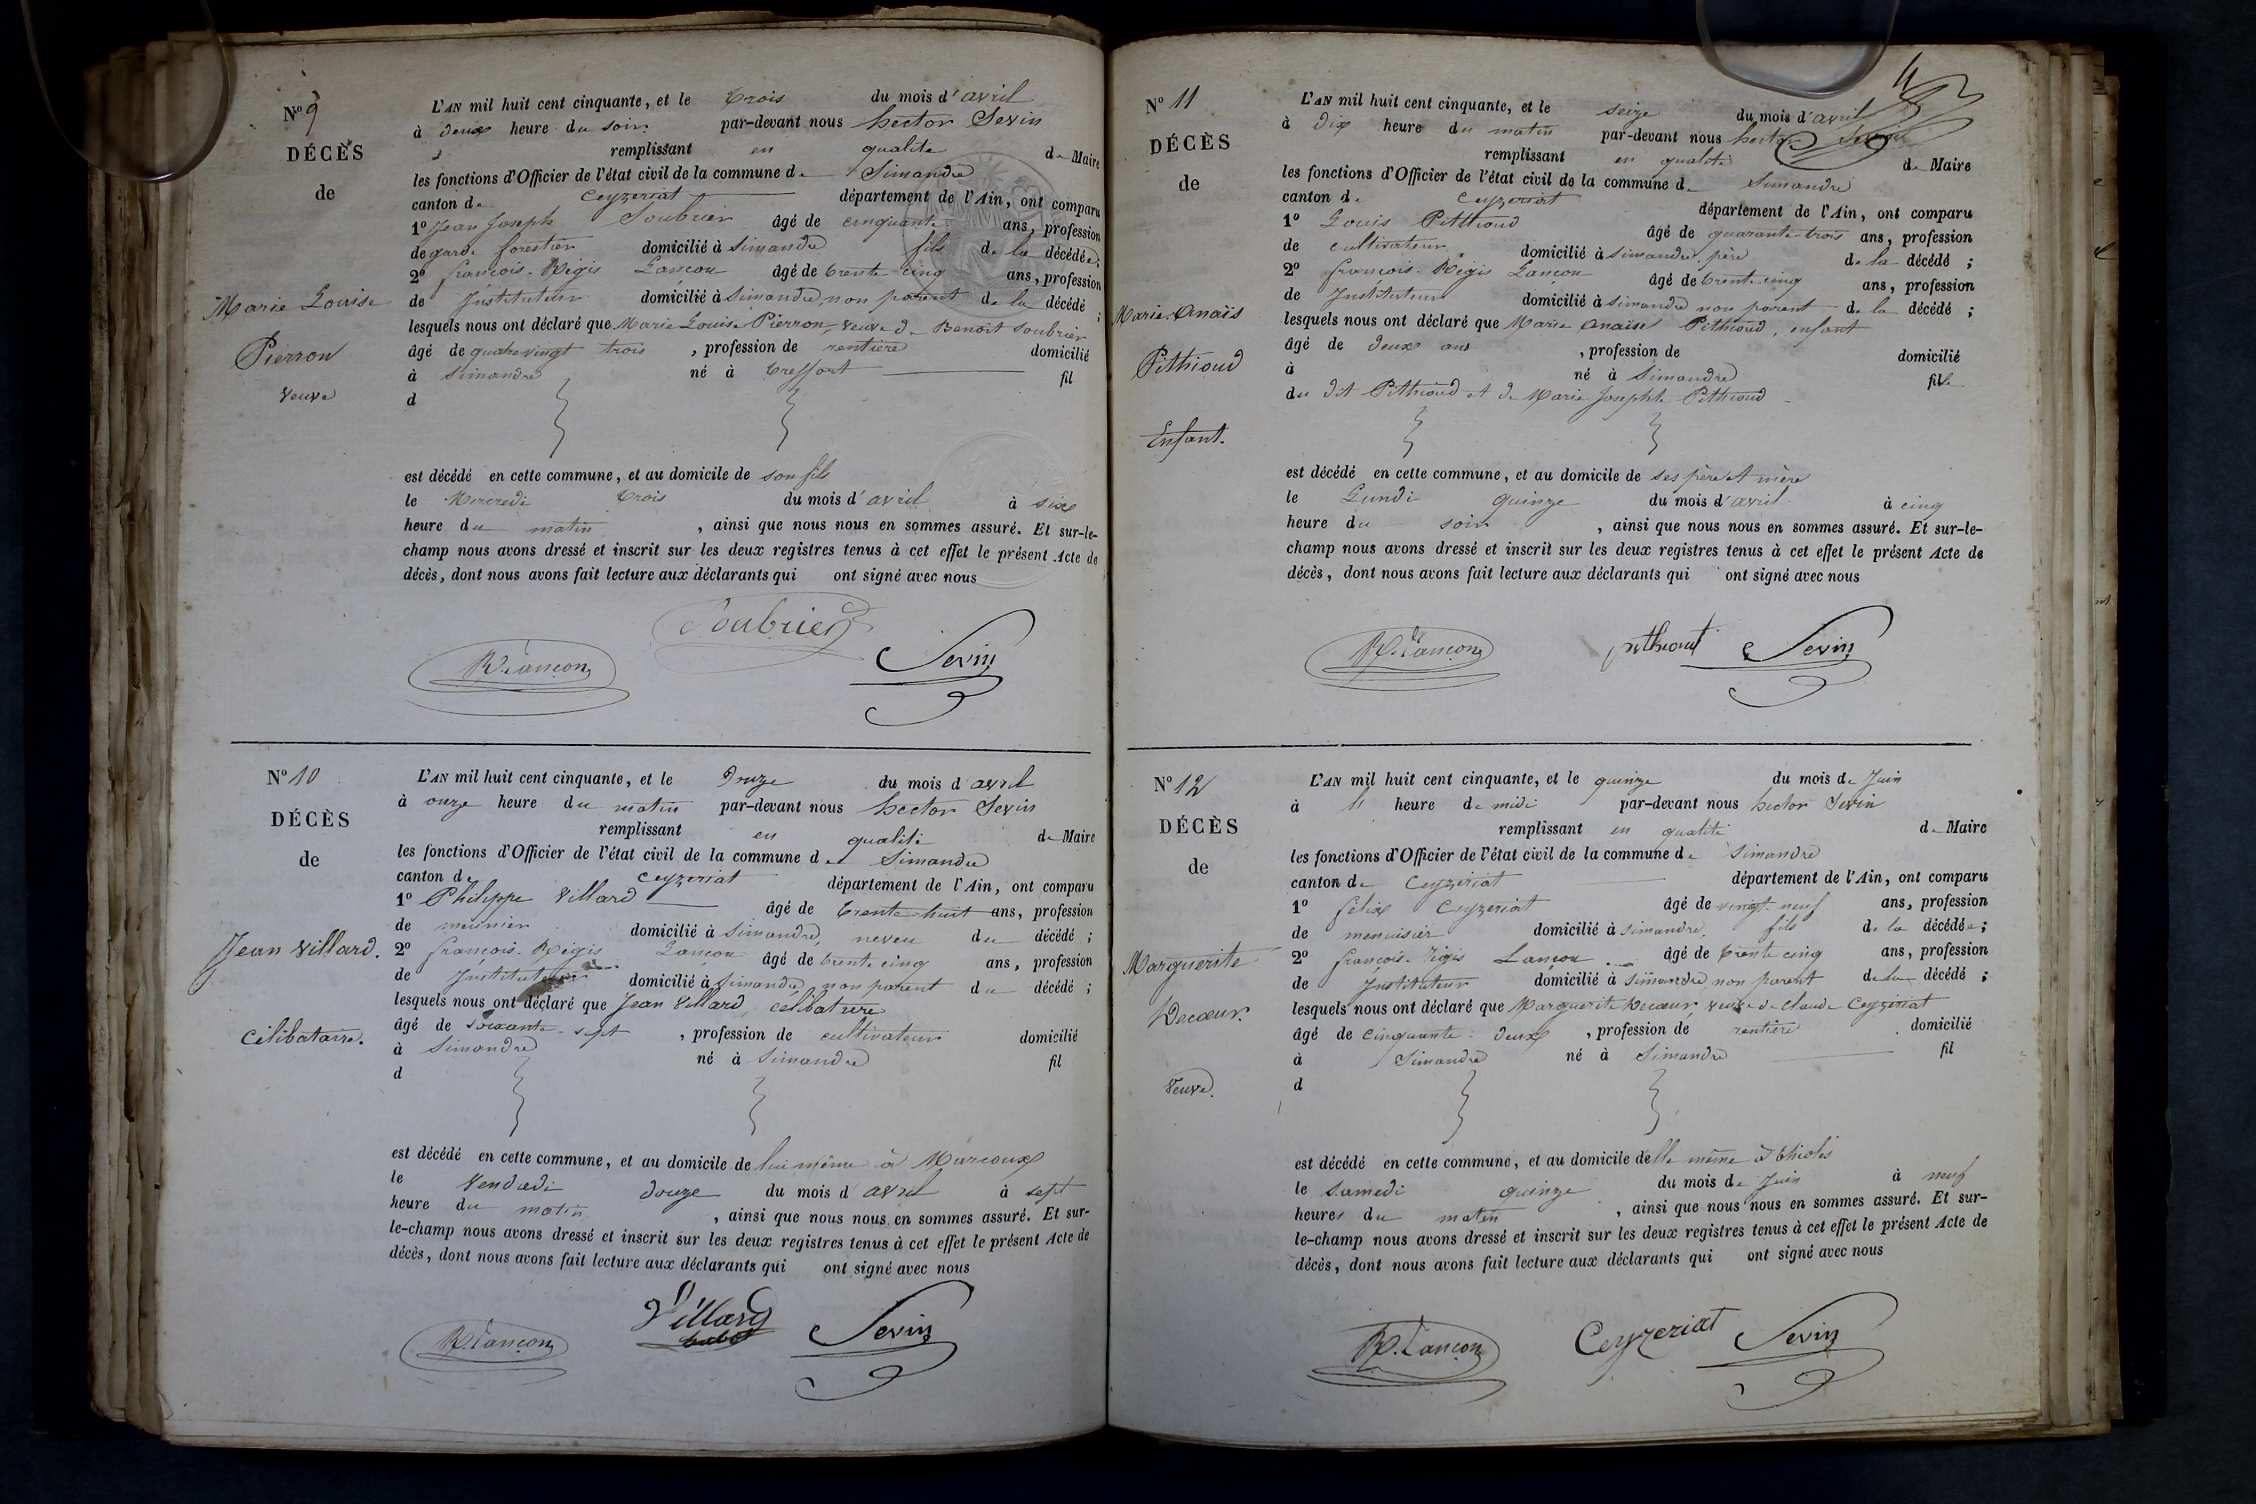 Nº 9
DÉCÈS
de
Marie Louise
Pierron
veuve
L'AN mil huit cent cinquante, et le trois du mois d'avril
à deux heure du soir par-devant nous hector Sevin
remplissant en qualité de Maire
les fonctions d'Officier de l'état civil de la commune de Simandre
canton de Ceyzeriat département de l'Ain, ont comparu
1º Jean Joseph Soubrier âgé de cinquante ans, profession
de garde forestier domicilié à Simandre fils de la décédée;
2º françois-Régis Lançon âgé de trente cinq ans, profession
de Instituteur domicilié à Simandre, non parent de la décédé ;
lesquels nous ont déclaré que Marie Louise Pierron, veuve de Benoit Soubrier
âgé de quatrevingt trois , profession de rentière domicilié
à Simandre né à Treffort fil
d
est décédé en cette commune, et au domicile de son fils
le Mercredi trois du mois d'avril à six
heure du matin , ainsi que nous nous en sommes assuré. Et sur-le-
champ nous avons dressé et inscrit sur les deux registres tenus à cet effet le présent Acte de
décès, dont nous avons fait lecture aux déclarants qui ont signé avec nous
Soubrier
R. Lançon Sevin
Nº 10
DÉCÈS
de
Jean Villard.
Célibataire.
L'AN mil huit cent cinquante, et le douze du mois d'avril
à onze heure du matin par-devant nous hector Sevin
remplissant en qualité de Maire
les fonctions d'Officier de l'état civil de la commune de Simandre
canton de Ceyzeriat département de l'Ain, ont comparu
1º Philippe Villard âgé de trente-huit ans, profession
de meunier domicilié à Simandre, neveu du décédé ;
2º françois-Régis Lançon âgé de trente cinq ans, profession
de Instituteur domicilié à Simandre, non parent du décédé ;
lesquels nous ont déclaré que Jean Villard, célibataire
âgé de soixante-sept , profession de cultivateur domicilié
à Simandre né à Simandre fil
d
est décédé en cette commune, et au domicile de lui même à Marcoux
le Vendredi douze du mois d'avril à sept
heure du matin , ainsi que nous nous en sommes assuré. Et sur-
le-champ nous avons dressé et inscrit sur les deux registres tenus à cet effet le présent Acte de
décès, dont nous avons fait lecture aux déclarants qui ont signé avec nous
R. Lançon Villard Sevin
Nº 11
DÉCÈS
de
Marie-Anaïs
Pithioud
Enfant.
L'AN mil huit cent cinquante, et le seize du mois d'avril
à dix heure du matin par-devant nous hector Sevin
remplissant en qualité de Maire
les fonctions d'Officier de l'état civil de la commune de Simandre
canton de Ceyzeriat département de l'Ain, ont comparu
1º Louis Pithioud âgé de quarante-trois ans, profession
de cultivateur domicilié à Simandre, père de la décédé ;
2º françois-Régis Lançon âgé de trente cinq ans, profession
de Instituteur domicilié à Simandre non parent de la décédé ;
lesquels nous ont déclaré que Marie Anaïse Pithioud, enfant
âgé de deux ans , profession de domicilié
à né à Simandre fille
du dit Pithioud et de Marie Josephte Pithioud
est décédé en cette commune, et au domicile de ses père et mère
le Lundi quinze du mois d'avril à cinq
heure du soir , ainsi que nous nous en sommes assuré. Et sur-le-
champ nous avons dressé et inscrit sur les deux registres tenus à cet effet le présent Acte de
décès, dont nous avons fait lecture aux déclarants qui ont signé avec nous
R. Lançon pithioud Sevin
Nº 12
DÉCÈS
de
Marguerite
Decœur.
Veuve.
L'AN mil huit cent cinquante, et le quinze du mois de Juin
à heure de midi par-devant nous hector Sevin
remplissant en qualité de Maire
les fonctions d'Officier de l'état civil de la commune de Simandre
canton de Ceyzeriat département de l'Ain, ont comparu
1º félix Ceyzeriat âgé de vingt-neuf ans, profession
de menuisier domicilié à Simandre, fils de la décédée;
2º françois-Régis Lançon âgé de trente cinq ans, profession
de Instituteur domicilié à Simandre non parent de la décédé ;
lesquels nous ont déclaré que Marguerite Decœur, veuve de Claude Ceyzeriat
âgé de Cinquante-deux , profession de rentière domicilié
à Simandre né à Simandre fil
d
est décédé en cette commune, et au domicile delle même à
le Samedi quinze du mois de Juin à neuf
heures du matin , ainsi que nous nous en sommes assuré. Et sur-
le-champ nous avons dressé et inscrit sur les deux registres tenus à cet effet le présent Acte de
décès, dont nous avons fait lecture aux déclarants qui ont signé avec nous
R. Lançon Ceyzeriat Sevin